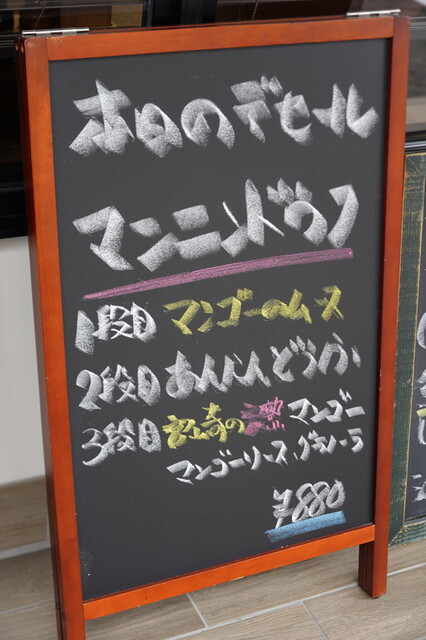 本日のデセール
マンニンドウフ
1段目 マンゴーのムース
2段目 あんにんどうふ
3段目 宮崎の完熟マンゴー
マンゴーソース、グラニーラ
¥880